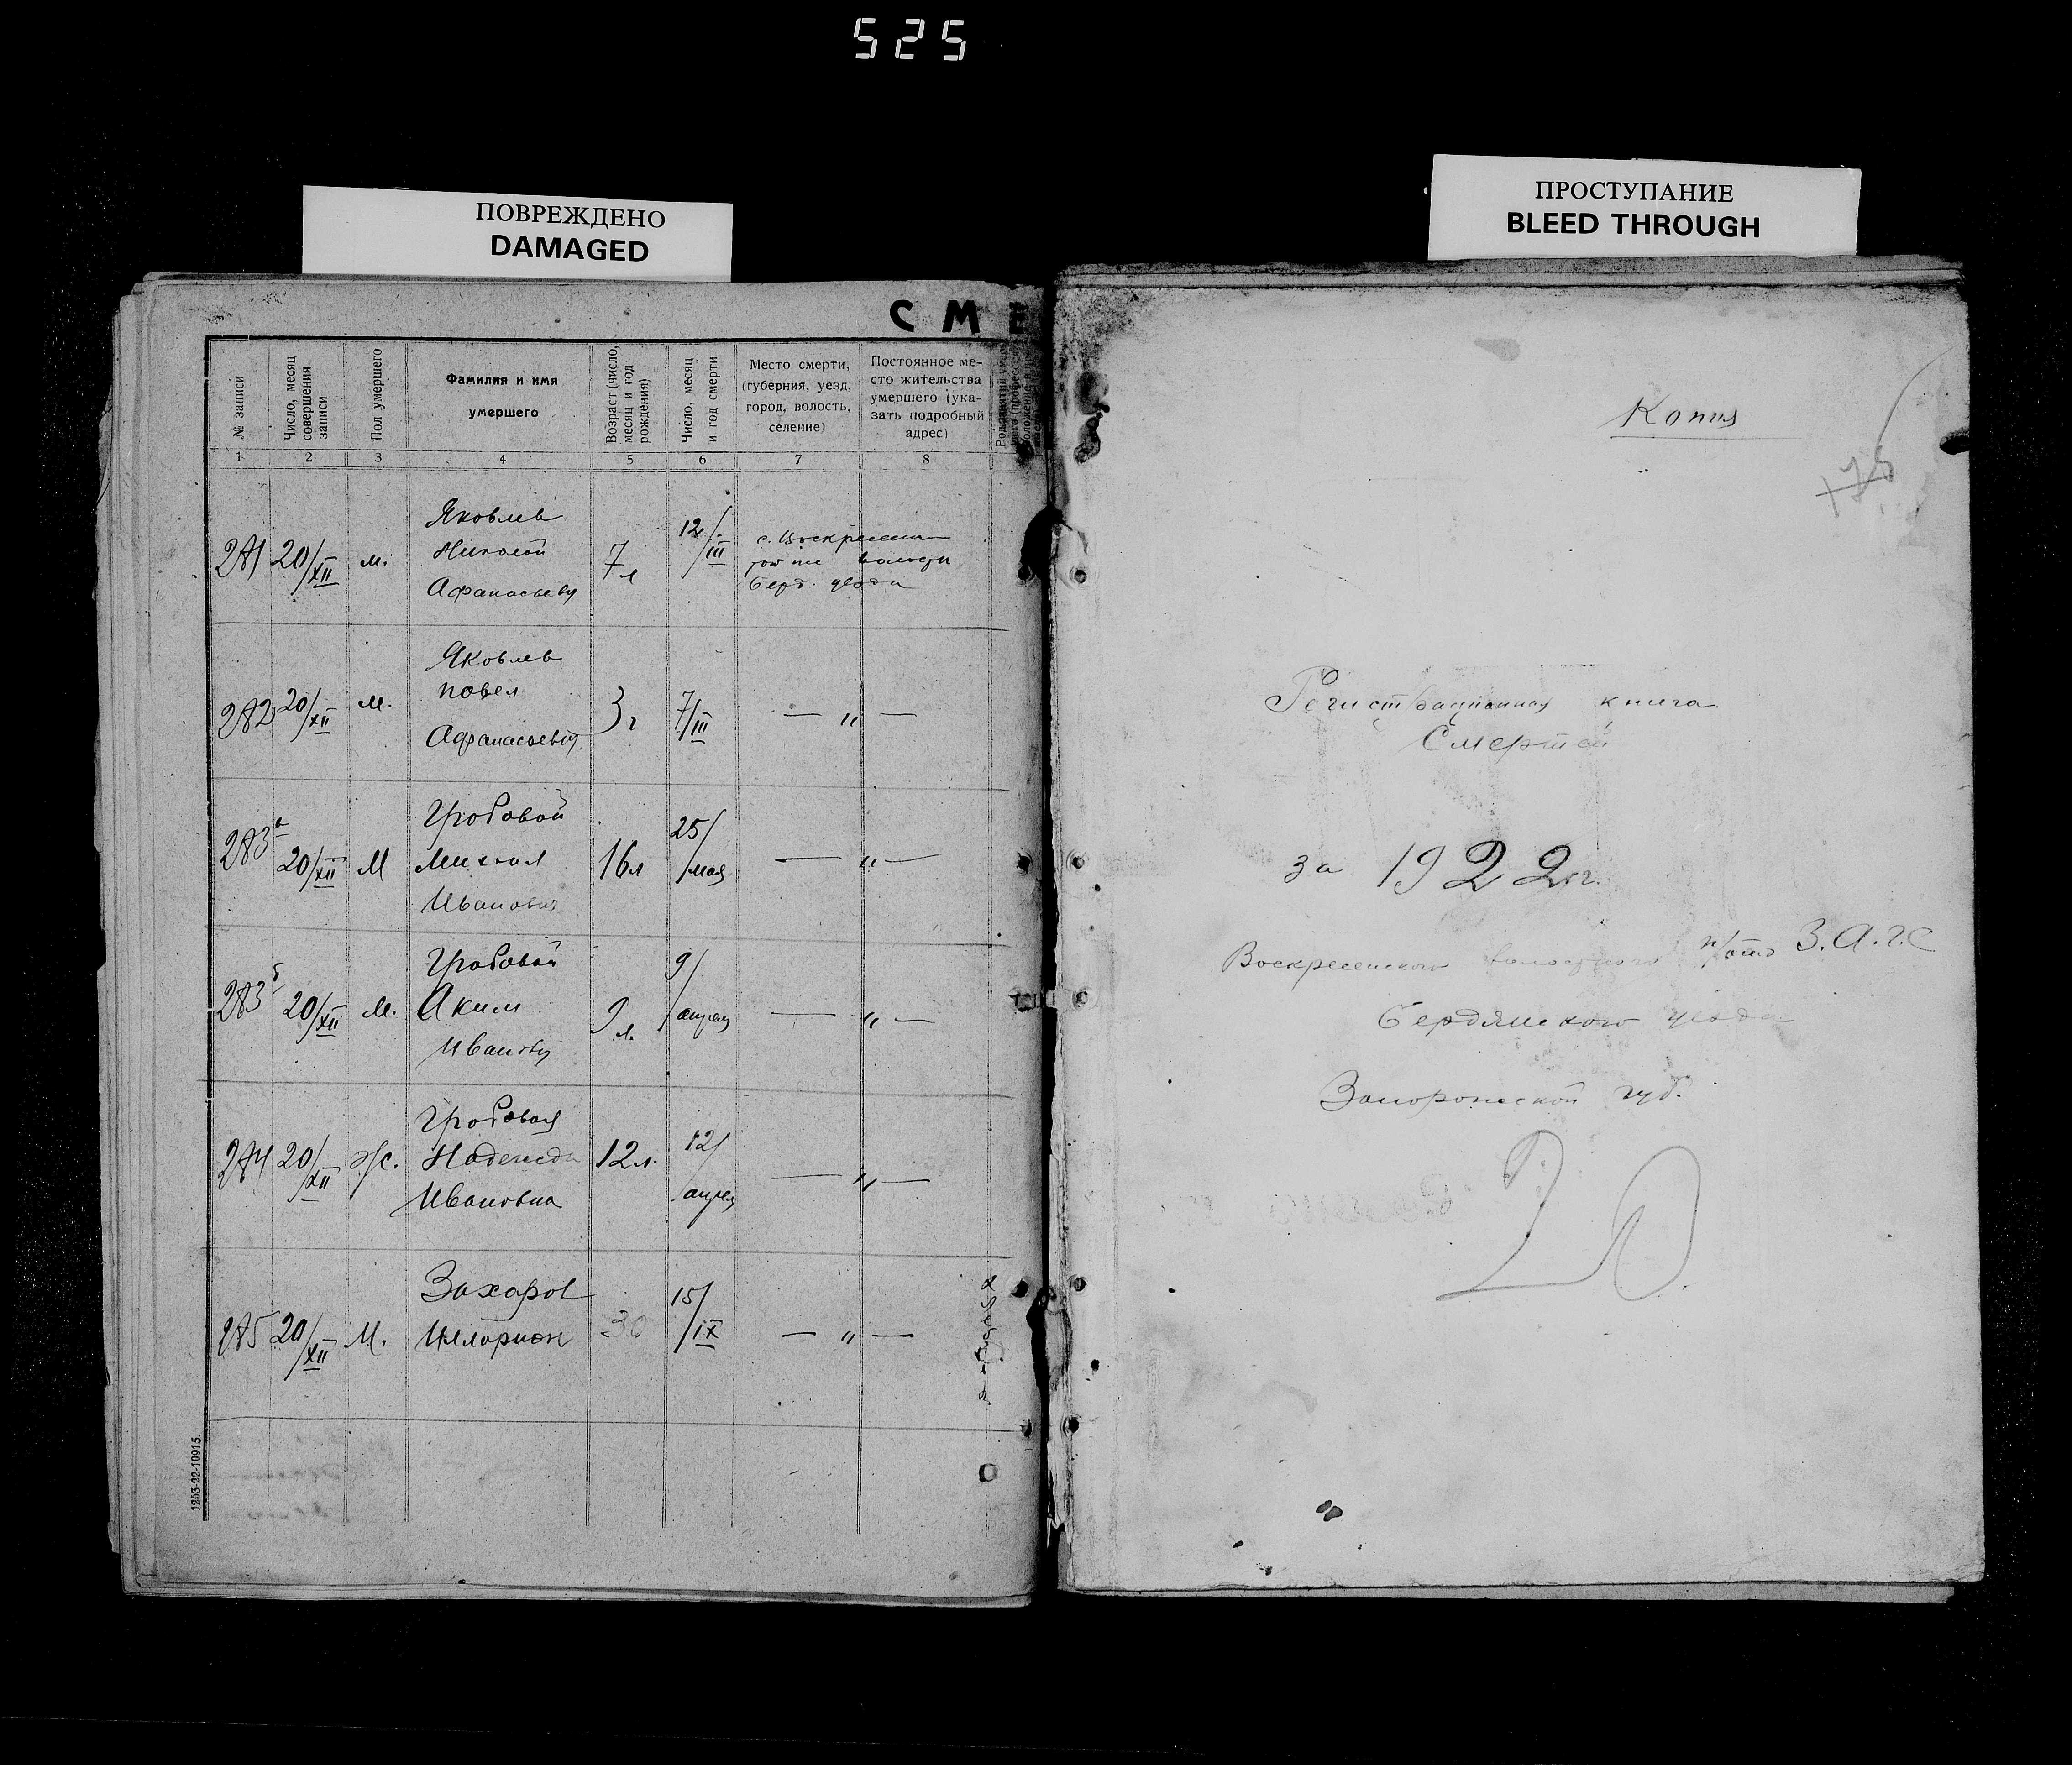 525
ПОВРЕЖДЕНО
DAMAGED
ПРОСТУПАНИЕ
BLEED THROUGH
С М Е
№ записи
Число, месяц совершения записи
Пол умершего
Фамилия и имя умершего
Возраст (число, месяц и год рождения)
Число, месяц и год смерти
Место смерти, (губерния, уезд, город, волость, селение)
Постоянное место жительства умершего (указать подробный адрес)
1 2 3 4 5 6 7 8
Яковлев
281 20/XII м. Николай 7 л 12/III с. Воскресенка
той же волости
Афанасьевич
Берд. уезда
Яковлев
282 20/XII м. Павел 3 г 7/III — „ —
Афанасьевич
Гробовой
283а 20/XII М Михаил 16 л 25/мая — „ —
Иванович
Гробовой
283б 20/XII м. Аким 9 л. 9/апреля — „ —
Иванович
Гробовая
284 20/XII ж. Надежда 12 л. 12/апреля — „ —
Ивановна
Захаров
285 20/XII М. Илларион 30 15/IX — „ —
1253-22-10915.
Копия
175
Регистрационная книга
Смертей
за 1922 г.
Воскресенского волостного п/отд З.А.Г.С
Бердянского уезда
Запорожской губ.
20